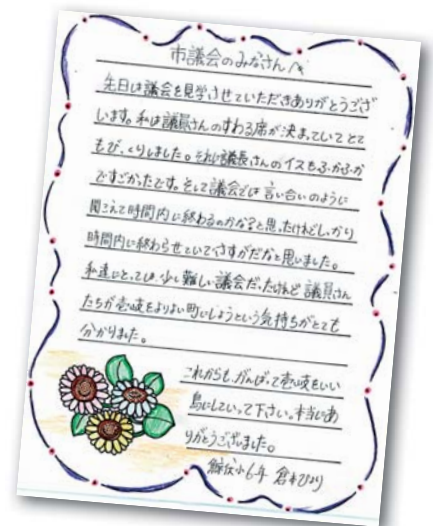 市議会のみなさんへ
先日は議会を見学させていただきありがとうござ
います。私は議員さんのすわる席が決まっていてとて
もびっくりしました。それに議長さんのイスもふかふか
ですごかったです。そして議会では言い合いのように
聞こえて時間内に終わるのかな?と思ったけれどしっかり
時間内に終わらせていてさすがだなと思いました。
私達にとっては、少し難しい議会だったけれど議員さん
たちが壱岐をよりよい町にしようという気持ちがとても
分かりました。
これからも、がんばって壱岐をいい
島にしていって下さい。本当にあ
りがとうございました。
鯨伏小6年 倉本ひより